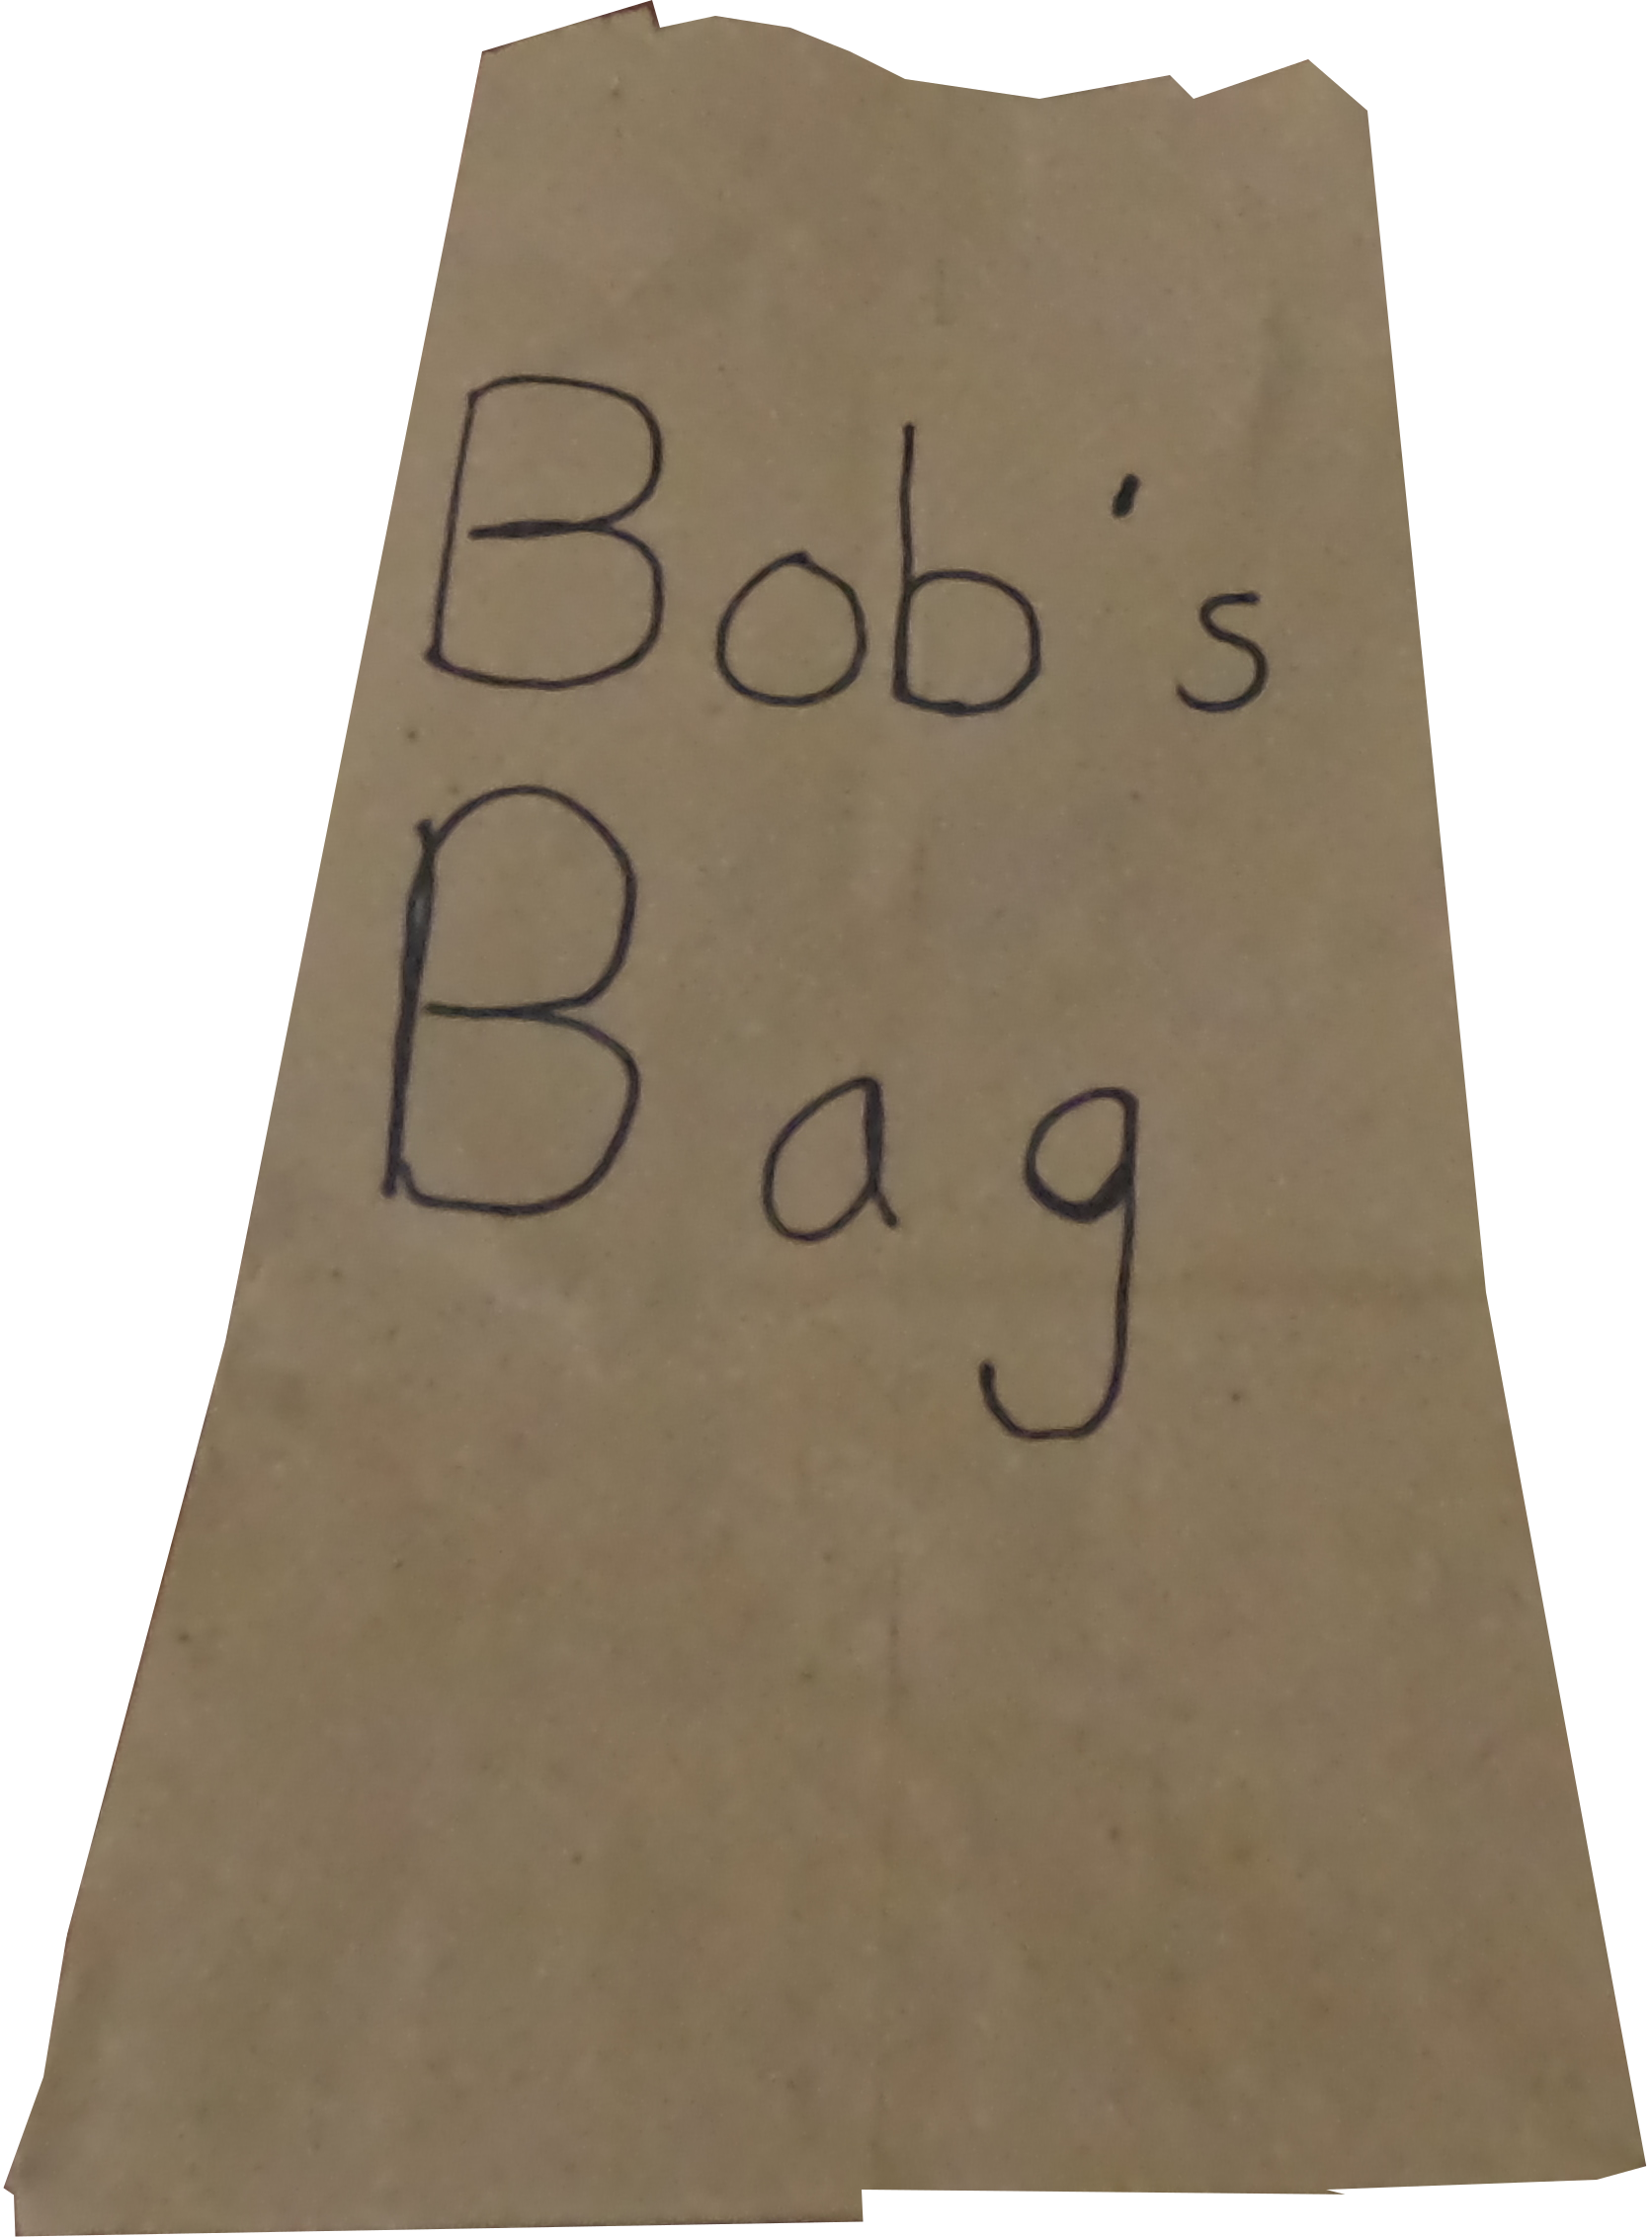 Bob's
Bag